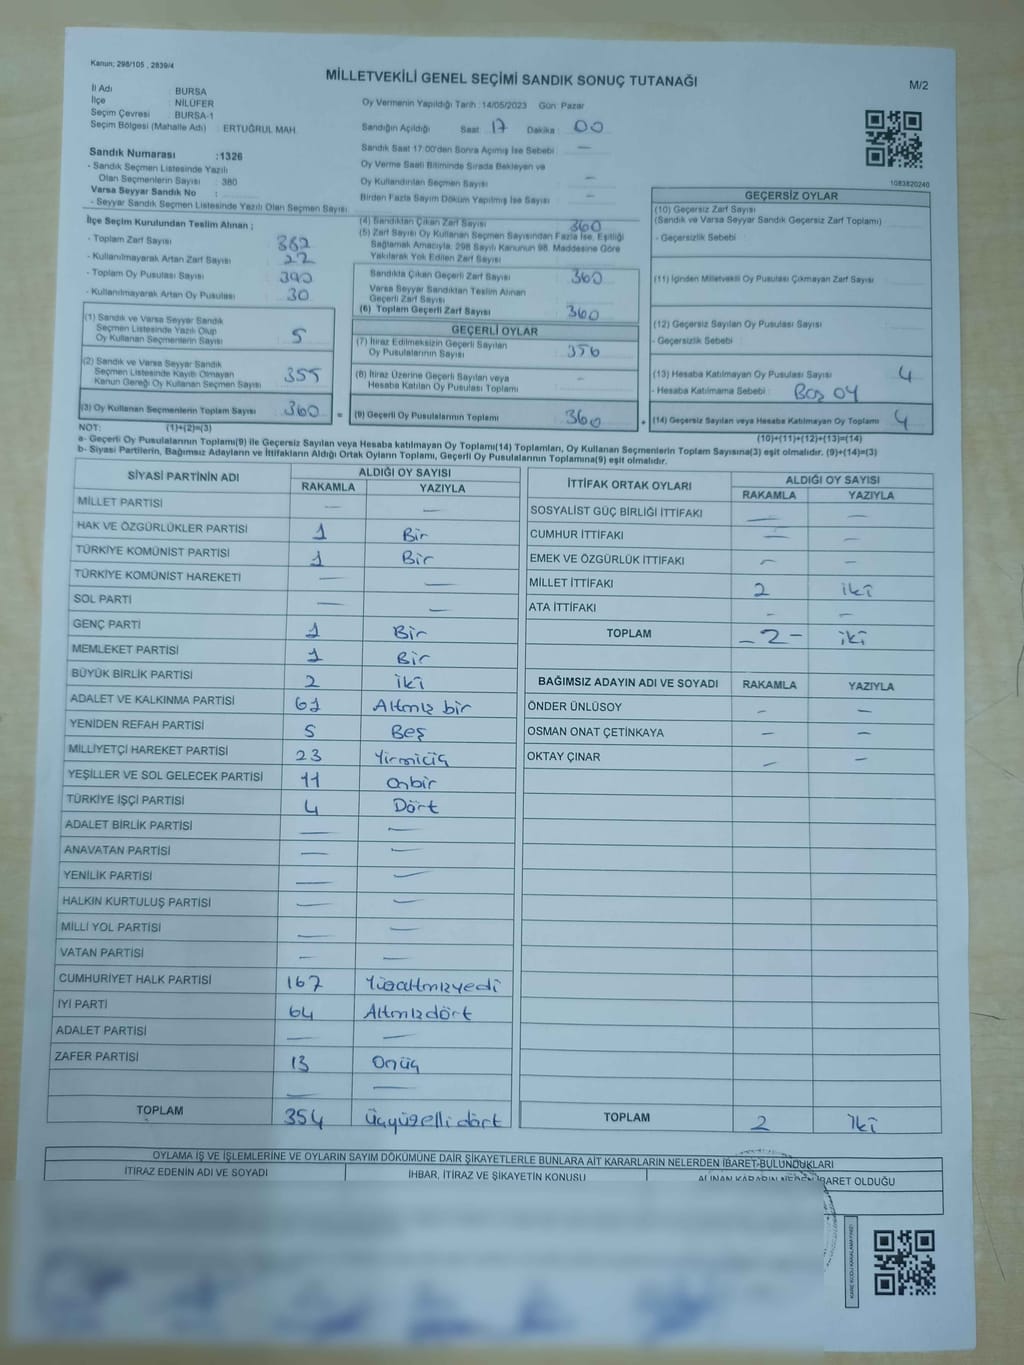 Kanun; 298/105 , 2839/4
MİLLETVEKİLİ GENEL SEÇİMİ SANDIK SONUÇ TUTANAĞI
M/2
İl Adı : BURSA
İlçe : NİLÜFER
Seçim Çevresi : BURSA-1
Seçim Bölgesi (Mahalle Adı) : ERTUĞRUL MAH.
Oy Vermenin Yapıldığı Tarih : 14/05/2023 Gün : Pazar
Sandığın Açıldığı Saat : 17 Dakika : 00
Sandık Saat 17:00'den Sonra Açılmış İse Sebebi : —
Oy Verme Saati Bitiminde Sırada Bekleyen ve
Oy Kullandırılan Seçmen Sayısı : —
Birden Fazla Sayım Döküm Yapılmış İse Sayısı : —
Sandık Numarası : 1326
- Sandık Seçmen Listesinde Yazılı
Olan Seçmenlerin Sayısı : 380
Varsa Seyyar Sandık No :
- Seyyar Sandık Seçmen Listesinde Yazılı Olan Seçmen Sayısı :
1083820240
İlçe Seçim Kurulundan Teslim Alınan ;
- Toplam Zarf Sayısı : 382
- Kullanılmayarak Artan Zarf Sayısı : 22
- Toplam Oy Pusulası Sayısı : 390
- Kullanılmayarak Artan Oy Pusulası : 30
(1) Sandık ve Varsa Seyyar Sandık
Seçmen Listesinde Yazılı Olup
Oy Kullanan Seçmenlerin Sayısı : 5
(2) Sandık ve Varsa Seyyar Sandık
Seçmen Listesinde Kayıtlı Olmayan
Kanun Gereği Oy Kullanan Seçmen Sayısı : 355
(3) Oy Kullanan Seçmenlerin Toplam Sayısı : 360 =
(4) Sandıktan Çıkan Zarf Sayısı : 360
(5) Zarf Sayısı Oy Kullanan Seçmen Sayısından Fazla İse, Eşitliği
Sağlamak Amacıyla, 298 Sayılı Kanunun 98. Maddesine Göre
Yakılarak Yok Edilen Zarf Sayısı :
Sandıkta Çıkan Geçerli Zarf Sayısı : 360
Varsa Seyyar Sandıktan Teslim Alınan
Geçerli Zarf Sayısı :
(6) Toplam Geçerli Zarf Sayısı : 360
GEÇERLİ OYLAR
(7) İtiraz Edilmeksizin Geçerli Sayılan
Oy Pusulalarının Sayısı : 356
(8) İtiraz Üzerine Geçerli Sayılan veya
Hesaba Katılan Oy Pusulası Toplamı : —
(9) Geçerli Oy Pusulalarının Toplamı : 360 +
GEÇERSİZ OYLAR
(10) Geçersiz Zarf Sayısı
(Sandık ve Varsa Seyyar Sandık Geçersiz Zarf Toplamı) :
- Geçersizlik Sebebi :
(11) İçinden Milletvekili Oy Pusulası Çıkmayan Zarf Sayısı :
(12) Geçersiz Sayılan Oy Pusulası Sayısı :
- Geçersizlik Sebebi :
(13) Hesaba Katılmayan Oy Pusulası Sayısı : 4
- Hesaba Katılmama Sebebi : Boş OY
(14) Geçersiz Sayılan veya Hesaba Katılmayan Oy Toplamı : 4
NOT: (1)+(2)=(3)
(10)+(11)+(12)+(13)=(14)
a- Geçerli Oy Pusulalarının Toplamı(9) ile Geçersiz Sayılan veya Hesaba katılmayan Oy Toplamı(14) Toplamları, Oy Kullanan Seçmenlerin Toplam Sayısına(3) eşit olmalıdır. (9)+(14)=(3)
b- Siyasi Partilerin, Bağımsız Adayların ve İttifakların Aldığı Ortak Oyların Toplamı, Geçerli Oy Pusulalarının Toplamına(9) eşit olmalıdır.
SİYASİ PARTİNİN ADI ALDIĞI OY SAYISI
RAKAMLA YAZIYLA
MİLLET PARTİSİ — —
HAK VE ÖZGÜRLÜKLER PARTİSİ 1 Bir
TÜRKİYE KOMÜNİST PARTİSİ 1 Bir
TÜRKİYE KOMÜNİST HAREKETİ — —
SOL PARTİ — —
GENÇ PARTİ 1 Bir
MEMLEKET PARTİSİ 1 Bir
BÜYÜK BİRLİK PARTİSİ 2 iki
ADALET VE KALKINMA PARTİSİ 61 Altmış bir
YENİDEN REFAH PARTİSİ 5 Beş
MİLLİYETÇİ HAREKET PARTİSİ 23 Yirmiüç
YEŞİLLER VE SOL GELECEK PARTİSİ 11 Onbir
TÜRKİYE İŞÇİ PARTİSİ 4 Dört
ADALET BİRLİK PARTİSİ — —
ANAVATAN PARTİSİ — —
YENİLİK PARTİSİ — —
HALKIN KURTULUŞ PARTİSİ — —
MİLLİ YOL PARTİSİ — —
VATAN PARTİSİ — —
CUMHURİYET HALK PARTİSİ 167 Yüzaltmışyedi
İYİ PARTİ 64 Altmışdört
ADALET PARTİSİ — —
ZAFER PARTİSİ 13 Onüç
— —
TOPLAM 354 Üçyüzellidört
İTTİFAK ORTAK OYLARI ALDIĞI OY SAYISI
RAKAMLA YAZIYLA
SOSYALİST GÜÇ BİRLİĞİ İTTİFAKI — —
CUMHUR İTTİFAKI — —
EMEK VE ÖZGÜRLÜK İTTİFAKI — —
MİLLET İTTİFAKI 2 iki
ATA İTTİFAKI — —
TOPLAM - 2 - iki
BAĞIMSIZ ADAYIN ADI VE SOYADI RAKAMLA YAZIYLA
ÖNDER ÜNLÜSOY — —
OSMAN ONAT ÇETİNKAYA — —
OKTAY ÇINAR — —
TOPLAM 2 İki
OYLAMA İŞ VE İŞLEMLERİNE VE OYLARIN SAYIM DÖKÜMÜNE DAİR ŞİKAYETLERLE BUNLARA AİT KARARLARIN NELERDEN İBARET BULUNDUKLARI
İTİRAZ EDENİN ADI VE SOYADI İHBAR, İTİRAZ VE ŞİKAYETİN KONUSU ALINAN KARARIN NEDEN İBARET OLDUĞU